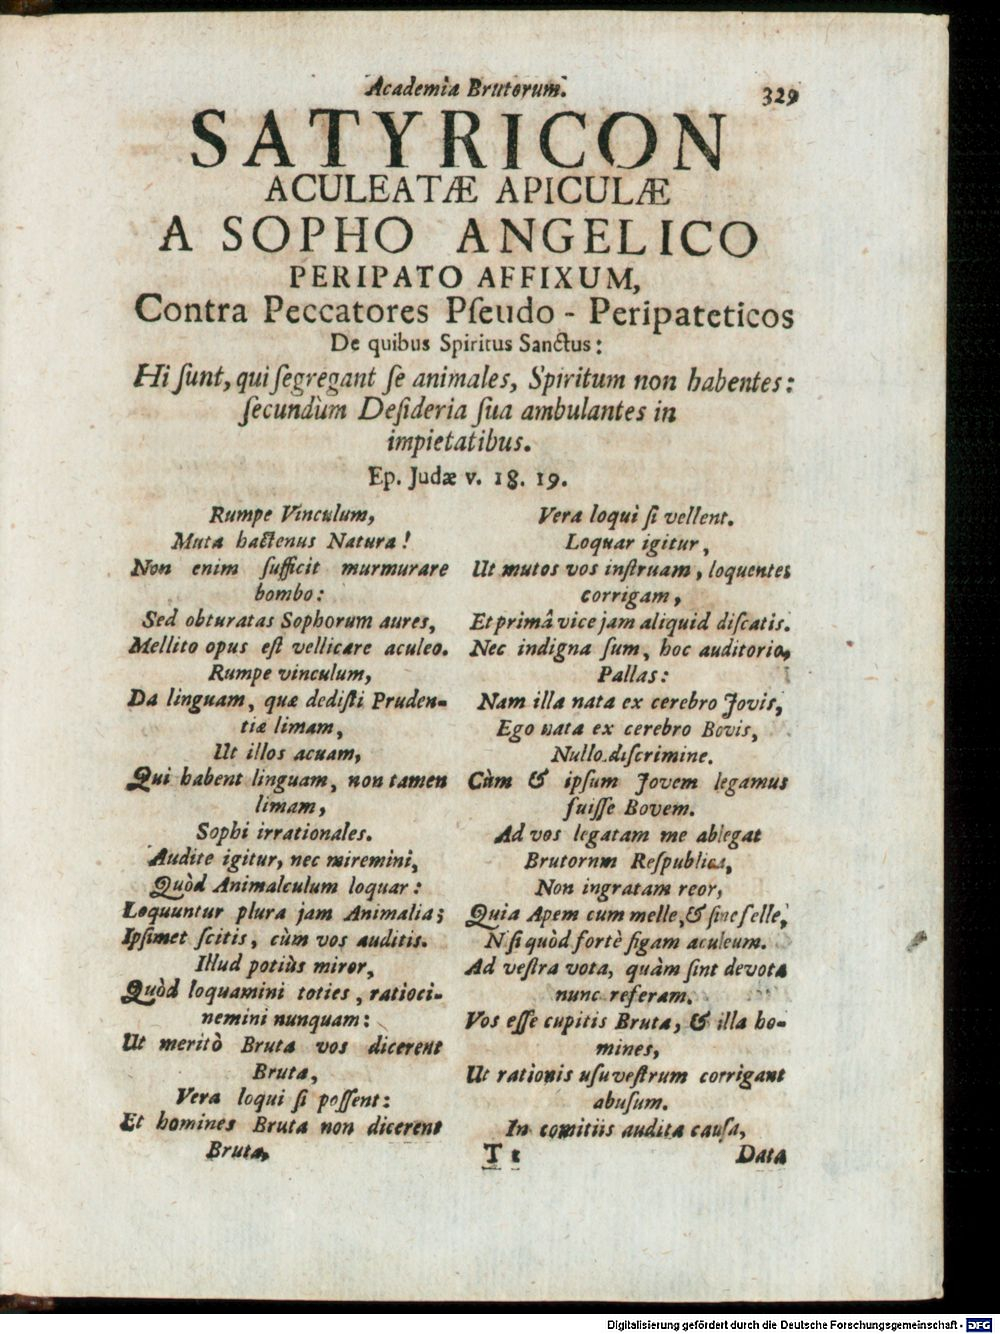 Academia Brutorum.
329
SATYRICON
ACULEATÆ APICULÆ
A SOPHO ANGELICO
PERIPATO AFFIXUM,
Contra Peccatores Pſeudo - Peripateticos
De quibus Spiritus Sanctus:
Hi ſunt, qui ſegregant ſe animales, Spiritum non habentes:
ſecundùm Deſideria ſua ambulantes in
impietatibus.
Ep. Judæ v. 18. 19.
Rumpe Vinculum,
Muta hactenus Natura!
Non enim ſufficit murmurare
bombo:
Sed obturatas Sophorum aures,
Mellito opus eſt vellicare aculeo.
Rumpe vinculum,
Da linguam, quæ dediſti Pruden-
tiæ limam,
Ut illos acuam,
Qui habent linguam, non tamen
limam,
Sophi irrationales.
Audite igitur, nec miremini,
Quòd Animalculum loquar:
Loquuntur plura jam Animalia;
Ipſimet ſcitis, cùm vos auditis.
Illud potiùs miror,
Quòd loquamini toties, ratioci-
nemini nunquam:
Ut meritò Bruta vos dicerent
Bruta,
Vera loqui ſi poſſent:
Et homines Bruta non dicerent
Bruta,
Vera loqui ſi vellent.
Loquar igitur,
Ut mutos vos inſtruam, loquentes
corrigam,
Et primâ vice jam aliquid diſcatis.
Nec indigna ſum, hoc auditorio,
Pallas:
Nam illa nata ex cerebro Jovis,
Ego nata ex cerebro Bovis,
Nullo diſcrimine.
Cùm & ipſum Jovem legamus
fuiſſe Bovem.
Ad vos legatam me ablegat
Brutornm Reſpublica,
Non ingratam reor,
Quia Apem cum melle, & ſine felle,
N ſi quòd fortè figam aculeum.
Ad veſtra vota, quàm ſint devota
nunc referam.
Vos eſſe cupitis Bruta, & illa ho-
mines,
Ut rationis uſu veſtrum corrigant
abuſum.
In comitiis audita cauſa,
T
Data
Digitalisierung gefördert durch die Deutsche Forschungsgemeinschaft - DFG